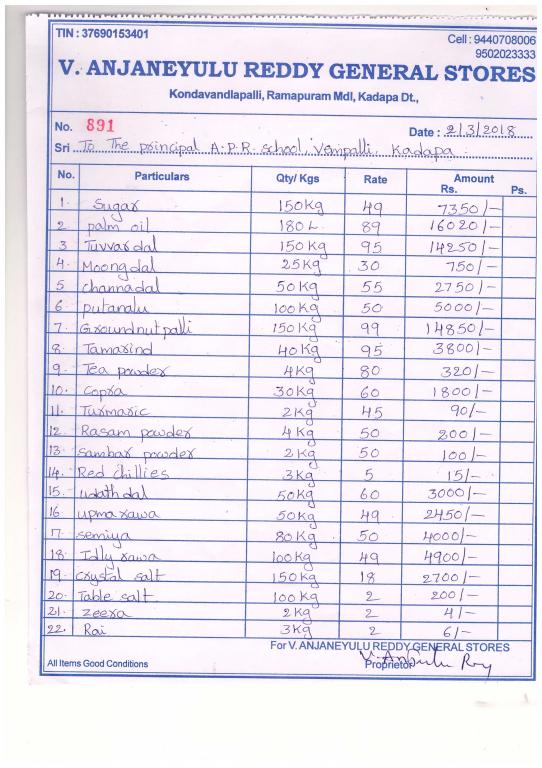 TIN : 37690153401
Cell : 9440708006
9502023333
V. ANJANEYULU REDDY GENERAL STORES
Kondavandlapalli, Ramapuram Mdl, Kadapa Dt.,
No. 891 Date : 2/3/2018
Sri To The principal A.P.R. school, Vempalli, Kadapa
No. Particulars Qty/ Kgs Rate Amount
Rs. Ps.
1. Sugar 150Kg 49 7350/-
2 palm oil 180 L 89 16020/-
3 Tuvvardal 150Kg 95 14250/-
4. Moongdal 25Kg 30 750/-
5 channadal 50Kg 55 2750/-
6. putanalu 100Kg 50 5000/-
7. Groundnutpalli 150Kg 99 14850/-
8. Tamarind 40Kg 95 3800/-
9. Tea powder 4Kg 80 320/-
10. Copra 30Kg 60 1800/-
11. Turmaric 2Kg 45 90/-
12. Rasam powder 4Kg 50 200/-
13. sambar powder 2Kg 50 100/-
14. Red chillies 3Kg 5 15/-
15. udath dal 50Kg 60 3000/-
16 upma rawa 50Kg 49 2450/-
17. semiya 80Kg 50 4000/-
18. Idly rawa 100Kg 49 4900/-
19. crystal salt 150Kg 18 2700/-
20. Table salt 100Kg 2 200/-
21. zeera 2Kg 2 4/-
22. Rai 3Kg 2 6/-
For V. ANJANEYULU REDDY GENERAL STORES
All Items Good Conditions Proprietor